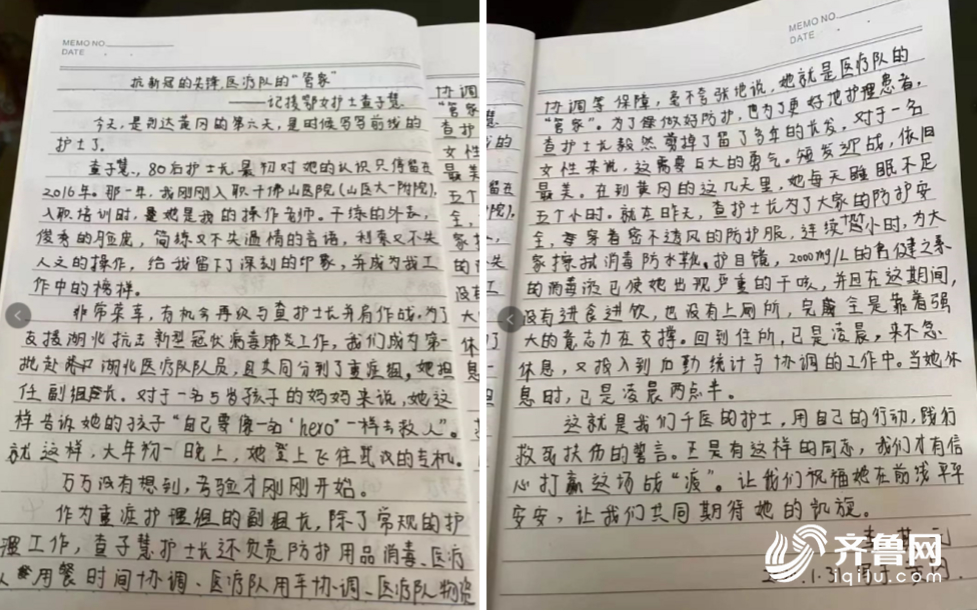 MEMO NO.
DATE
抗新冠的先锋,医疗队的“管家”
——记援鄂女护士查子慧
今天,是到达黄冈的第六天,是时候写写前线的
护士了。
查子慧,80后护士长,最初对她的认识只停留在
2016年。那一年,我刚刚入职千佛山医院(山医大一附院),
入职培训时,她是我的操作老师。干练的外表,
俊秀的脸庞,简练又不失温情的言语,利索又不失
人文的操作,给我留下了深刻的印象,并成为我工
作中的榜样。
非常荣幸,有机会再次与查护士长并肩作战。为了
支援湖北抗击新型冠状病毒肺炎工作,我们成为第一
批赴湖北医疗队队员,且共同分到了重症组,她担
任副组长。对于一名5岁孩子的妈妈来说,她这
样告诉她的孩子“自己要像一名‘hero’一样去救人”。
就这样,大年初一晚上,她登上飞往武汉的专机。
万万没有想到,考验才刚刚开始。
作为重症护理组的副组长,除了常规的护
理工作,查子慧护士长还负责防护用品消毒、医疗
队用餐时间协调、医疗队用车协调、医疗队物资
MEMO NO.
DATE
协调等保障,毫不夸张地说,她就是医疗队的
“管家”。为了做好防护,也为了更好地护理患者,
查护士长毅然剪掉了留了多年的长发,对于一名
女性来说,这需要巨大的勇气。短发迎战,依旧
最美。在到黄冈的这几天里,她每天睡眠不足
五个小时。就在昨天,查护士长为了大家的防护安
全,穿着密不透风的防护服,连续小时,为大
家擦拭消毒防水靴、护目镜,2000mg/L的含氯
的消毒液已使她出现严重的干咳,并且在这期间,
没有进食进饮,也没有上厕所,完全是靠着强
大的意志力在支撑。回到住所,已是凌晨,来不急
休息,又投入到后勤统计与协调的工作中。当她休
息时,已是凌晨两点半。
这就是我们千医的护士,用自己的行动,践行
救死扶伤的誓言。正是有这样的同志,我们才有信
心打赢这场战“疫”。让我们祝福她在前线平平
安安,让我们共同期待她的凯旋。
齐鲁网
iqilu.com